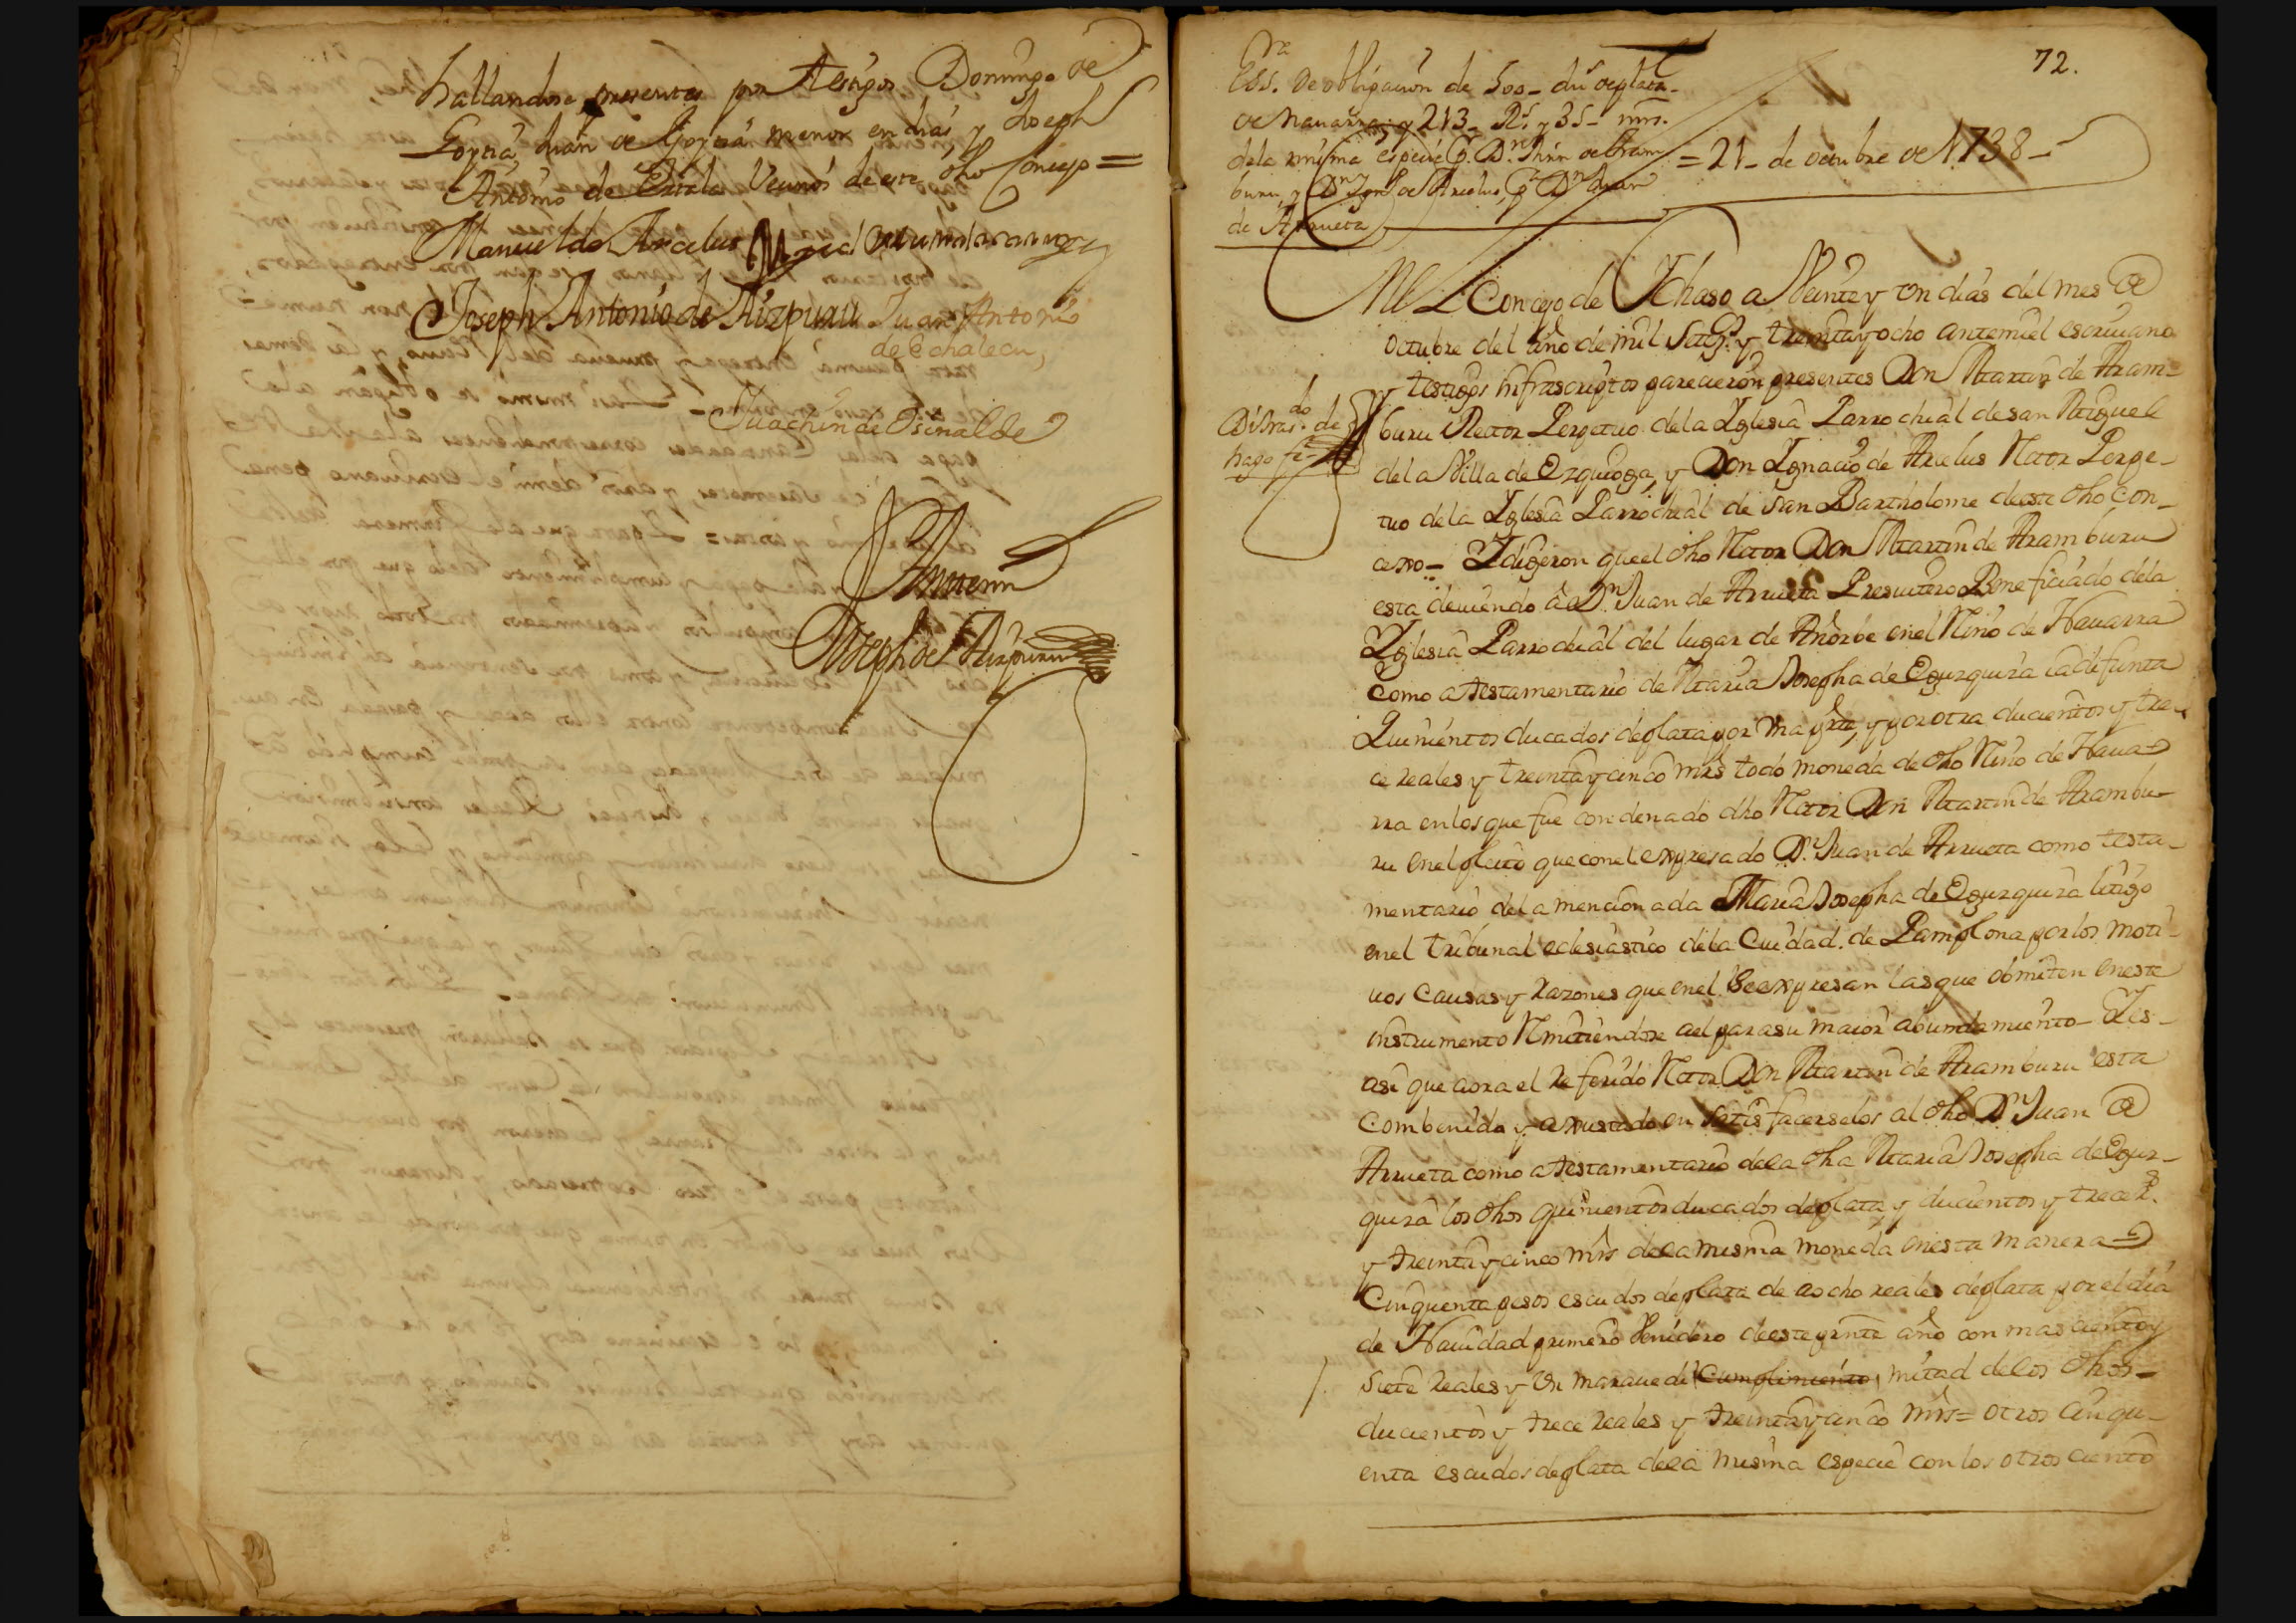 hallandose presentes por testigos Domingo de
Goytia, Juan de Goytia menor en dias, y Joseph
Antonio de Vecinos de este dho Concejo =
Manuel de Arcelus Miguel
Joseph Antonio de Aizpuru Juan Antonio
de Echalecu,
Juachin de Osinalde
Ante mi
Joseph de Aizpuru
72.
Essra. De obligacion de 500_ dus de plata
de Navarra, y 213_ Rs. y 35_ mrs.
dela misma especie Dn. Mrn de Aram
buru, y Dn Ign.o de Arcelus, Dn Juan
de Arrueta
= 21_ de octubre de 1738_
En el Concejo de Ychaso a Veinte y un dias del mes de
octubre del año de mil Setez.s y treinta y ocho ante mi el escriuano
y testigos infrascriptos parecieron presentes Don Martin de Aram=
buru Rector Perpetuo dela Yglesia Parrochial de san Miguel
dela Villa de Ezquioga, y Don Ygnacio de Arcelus Rector Perpe_
tuo dela Yglesia Parrochial de san Bartholome de este dho con_
cexo_ Y digeron que el dho Rector Don Martin de Aramburu
esta deuiendo a Dn. Juan de Arrueta Presuitero Beneficiado dela
Yglesia Parrochial del lugar de Añorbe en el Rno de Nauarra
como a testamentario de Maria Josepha de Egurquiza la difunta
Quinientos ducados de plata por Vna prte, y por otra ducientos y tre_
ce reales y treinta y cinco mrs todo moneda de dho Rno de Naua=
rra en los que fue condenado dho Rector Dn Martin de Arambu_
ru en el pleito que con el expresado Dn. Juan de Arrueta como testa_
mentario dela mencionada Maria Josepha de Egurquiza litigo
en el tribunal eclesiastico dela Ciudad de Pamplona por los moti_
uos Causas y razones que en el Se expresan las que obmiten en este
instrumento Rmitiendose a el para su maior abundamiento_ Y es_
asi que aora el referido Rector Don Martin de Aramburu esta
combenido y axustado en satisfacerselos al dho Dn Juan de
Arrueta como a testamentario dela dha Maria Josepha de Egur_
quiza los dhos quinientos ducados de plata y ducientos y trece Rs.
y treinta y cinco mrs dela misma moneda en esta manera =
Cinquenta pesos escudos de plata de a ocho reales de plata por el dia
de Nauidad primero Venidero de este prnte año con mas ciento y
siete reales y Un marauedi cumplimiento, mitad de los dhos_
ducientos y trece reales y treinta y cinco mrs = otros cinqu_
enta escudos de plata dela misma especie con los otros ciento
Dibrasdo. de
hago fe_